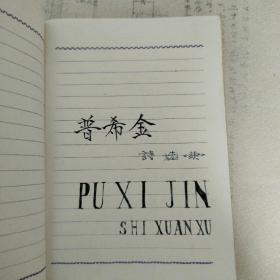 普希金
詩选续
PU XI JIN
SHI XUAN XU